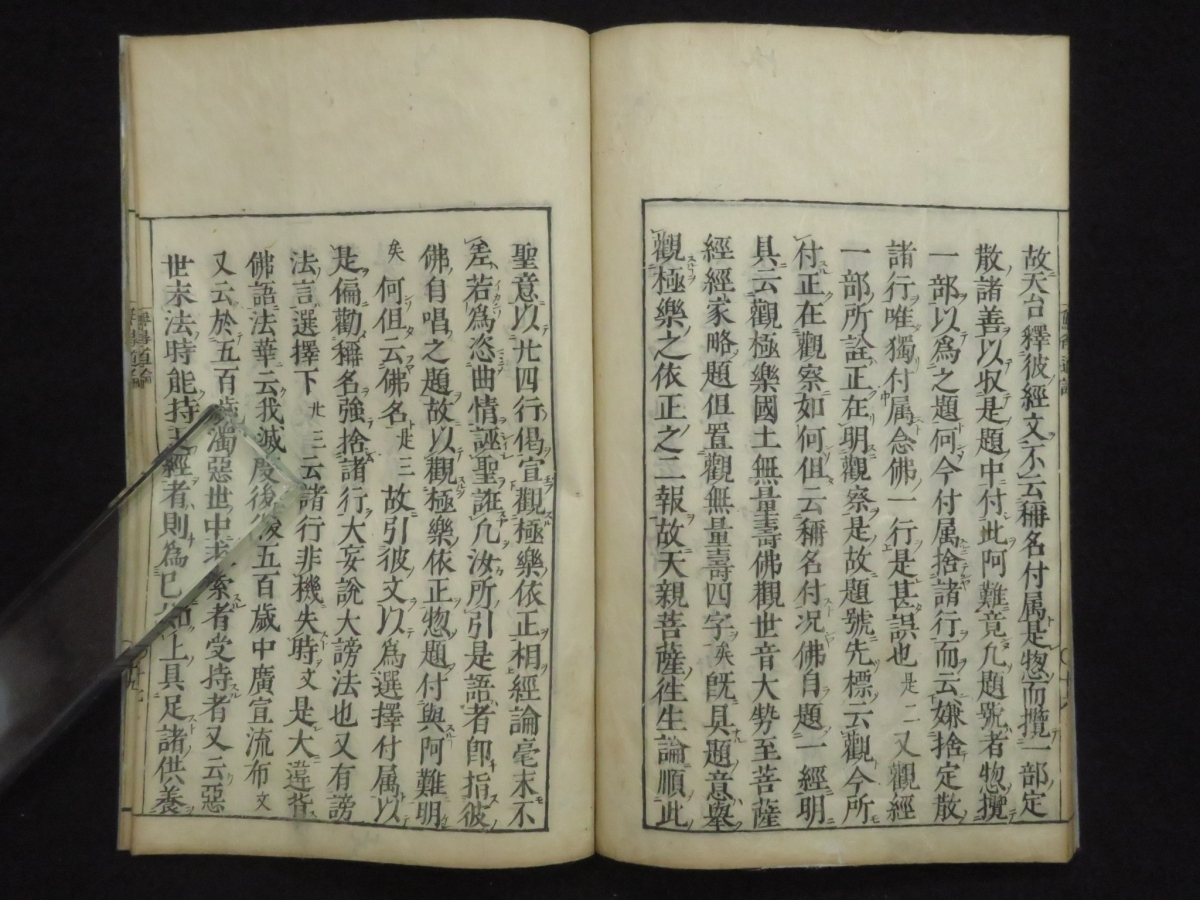 故天台釋彼經文不云稱名付属是惣而攬一部定
散諸善以収是題中付此阿難竟凢題號者惣攬
一部以爲之題何今付属捨諸行而云嫌捨定散
諸行唯獨付属念佛一行是甚誤也是二又觀經
一部所詮正在明觀察是故題號先標云觀今所
付正在觀察如何但云稱名付况佛自題一經明
具云觀極樂國土無量壽佛觀世音大勢至菩薩
經經家略題但置觀無量壽四字矣旣具題意擧
觀極樂之依正之二報故天親菩薩徃生論順此
聖意以廿四行偈宣觀極樂依正相經論毫末不
差若爲恣曲情誣聖誑凢汝所引是語者卽指彼
佛自唱之題故以觀極樂依正惣題付與阿難明
矣何但云佛名是三故引彼文以爲選擇付属以
是偏勸稱名強捨諸行大妄說大謗法也又有謗
法言選擇下三云諸行非機失時文是大違背
佛語法華云我滅度後後五百歲中廣宣流布文
又云於五百歲濁惡世中索者受持者又云惡
世末法時能持經者則為已如上具足諸供養